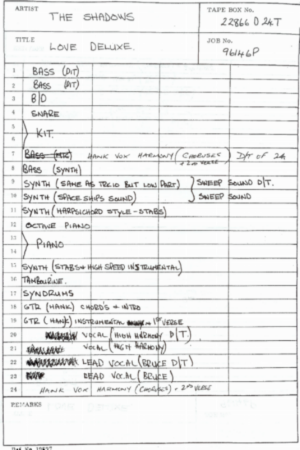 ARTIST THE SHADOWS
TAPE BOX No. 22866 D 24T
TITLE LOVE DELUXE
JOB No. 96146P
1 BASS (DIT)
2 BASS (DIT)
3 B|D
4 SNARE
5
6 KIT.
7 HANK VOX HARMONY (CHORUSES + 2ND VERSE) D/T OF 24
8 BASS (SYNTH)
9 SYNTH (SAME AS TRK 10 BUT LOW PART) SWEEP SOUND D/T.
10 SYNTH (SPACE SHIPS SOUND) SWEEP SOUND
11 SYNTH (HARPSICHORD STYLE - STABS)
12 OCTAVE PIANO
13
14 PIANO
15 SYNTH (STABS + HIGH SPEED INSTRUMENTAL)
16 TAMBOURINE.
17 SYNDRUMS
18 GTR (HANK) CHORD'S + INTRO
19 GTR (HANK) INSTRUMENTAL 1ST VERSE
20 VOCAL (HIGH HARMONY D/T)
21 VOCAL (HIGH HARMONY)
22 LEAD VOCAL (BRUCE D/T)
23 LEAD VOCAL (BRUCE)
24 HANK VOX HARMONY (CHORUSES) + 2ND VERSE
REMARKS